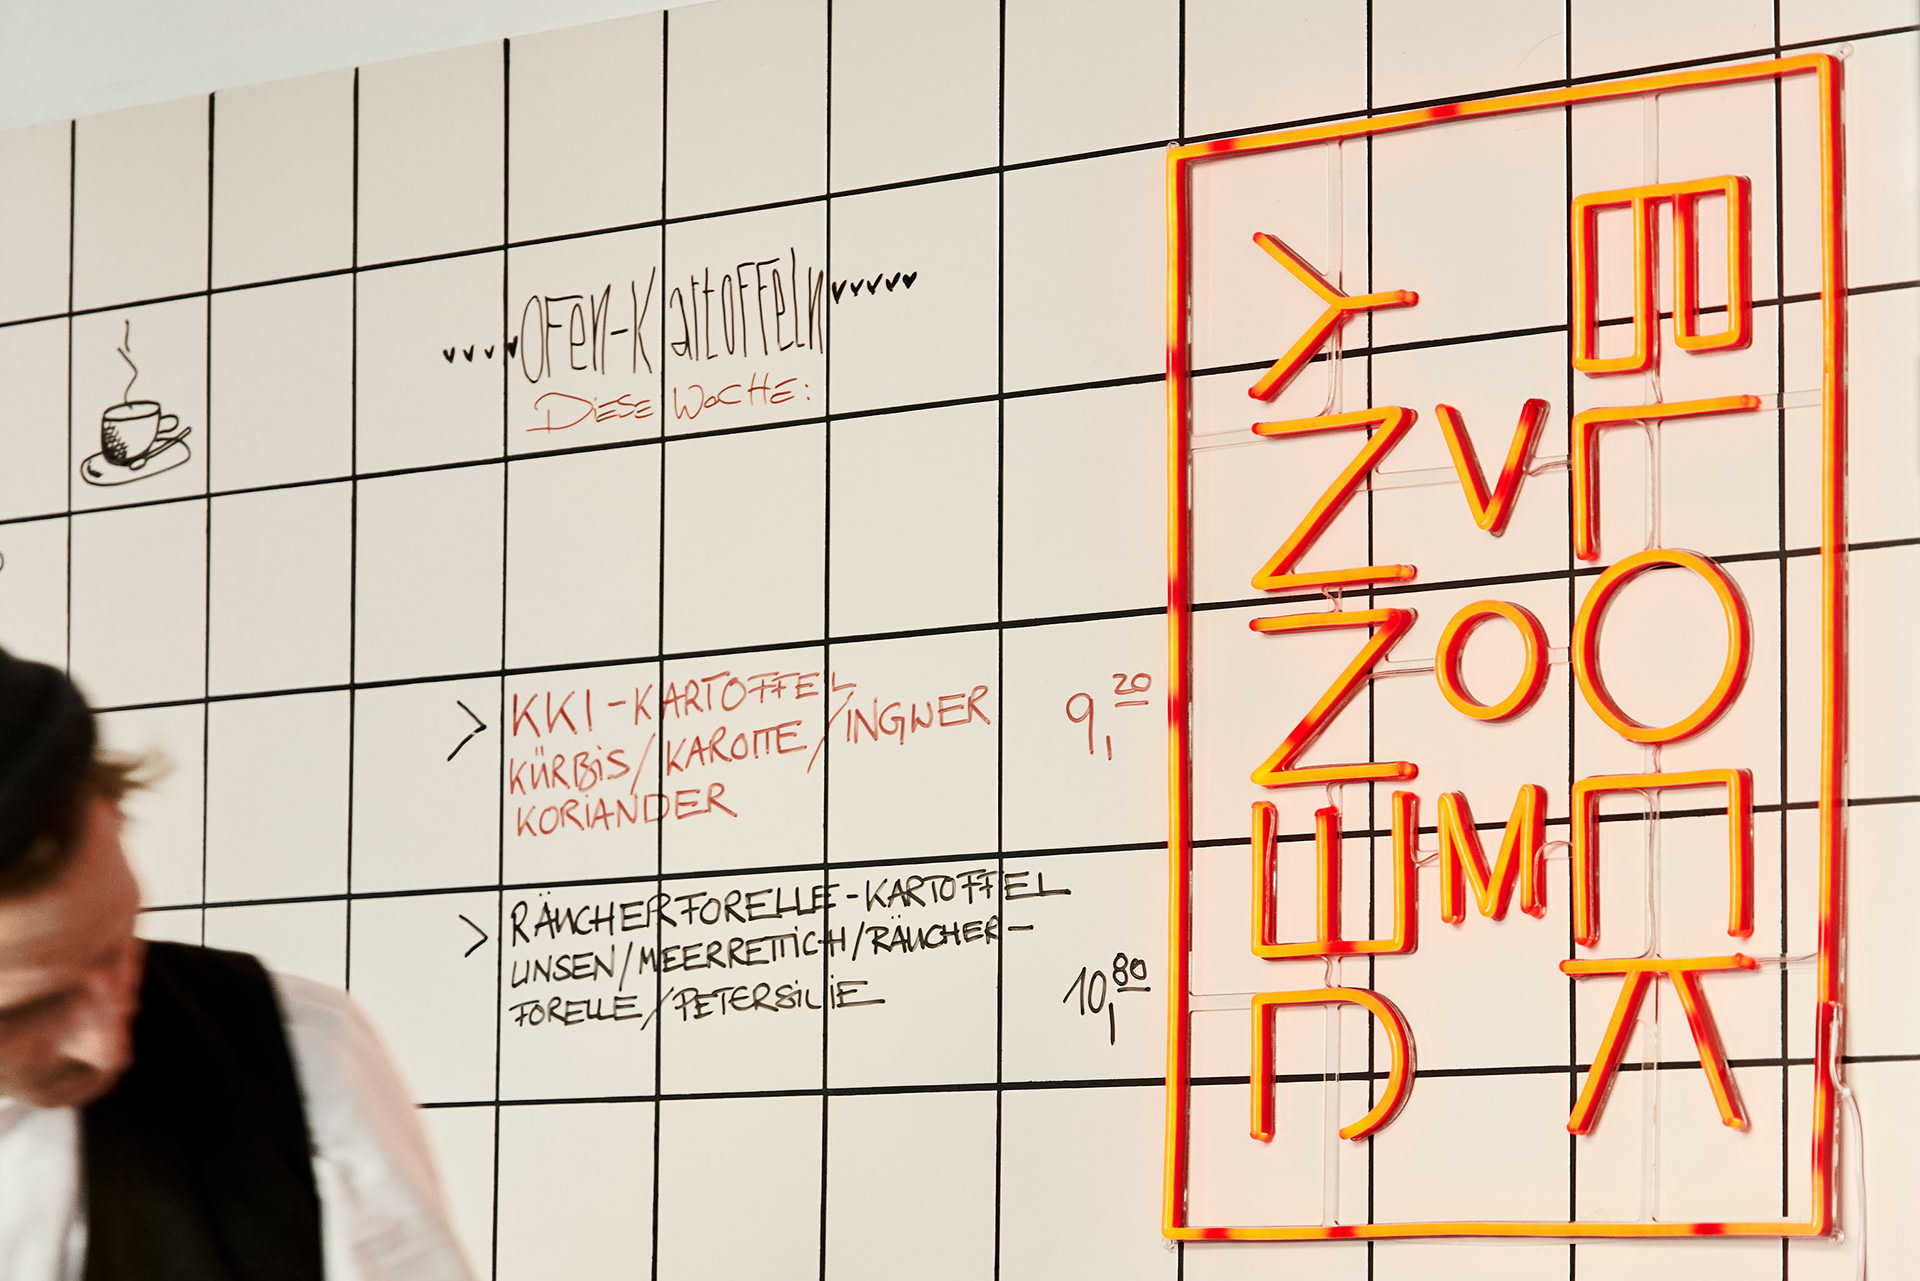 OFEN-KARTOFFELN
DIESE WOCHE:
> KKI-KARTOFFEL
KÜRBIS/KAROTTE/INGWER 9,20
KORIANDER
> RÄUCHERFORELLE-KARTOFFEL
LINSEN/MEERRETTICH/RÄUCHER-
FORELLE/PETERSILIE 10,80
JENNY
VOM
BLOCK